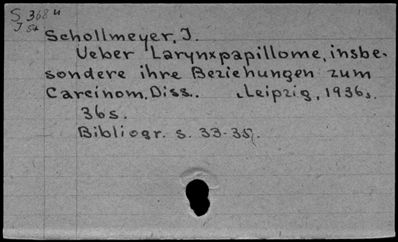 S 368 u
J St
Schollmeyer, J.
Ueber Larynxpapillome, insbe-
sondere ihre Beziehungen zum
Carcinom. Diss.. Leipzig, 1936.
36s.
Bibliogr. s. 33-35.